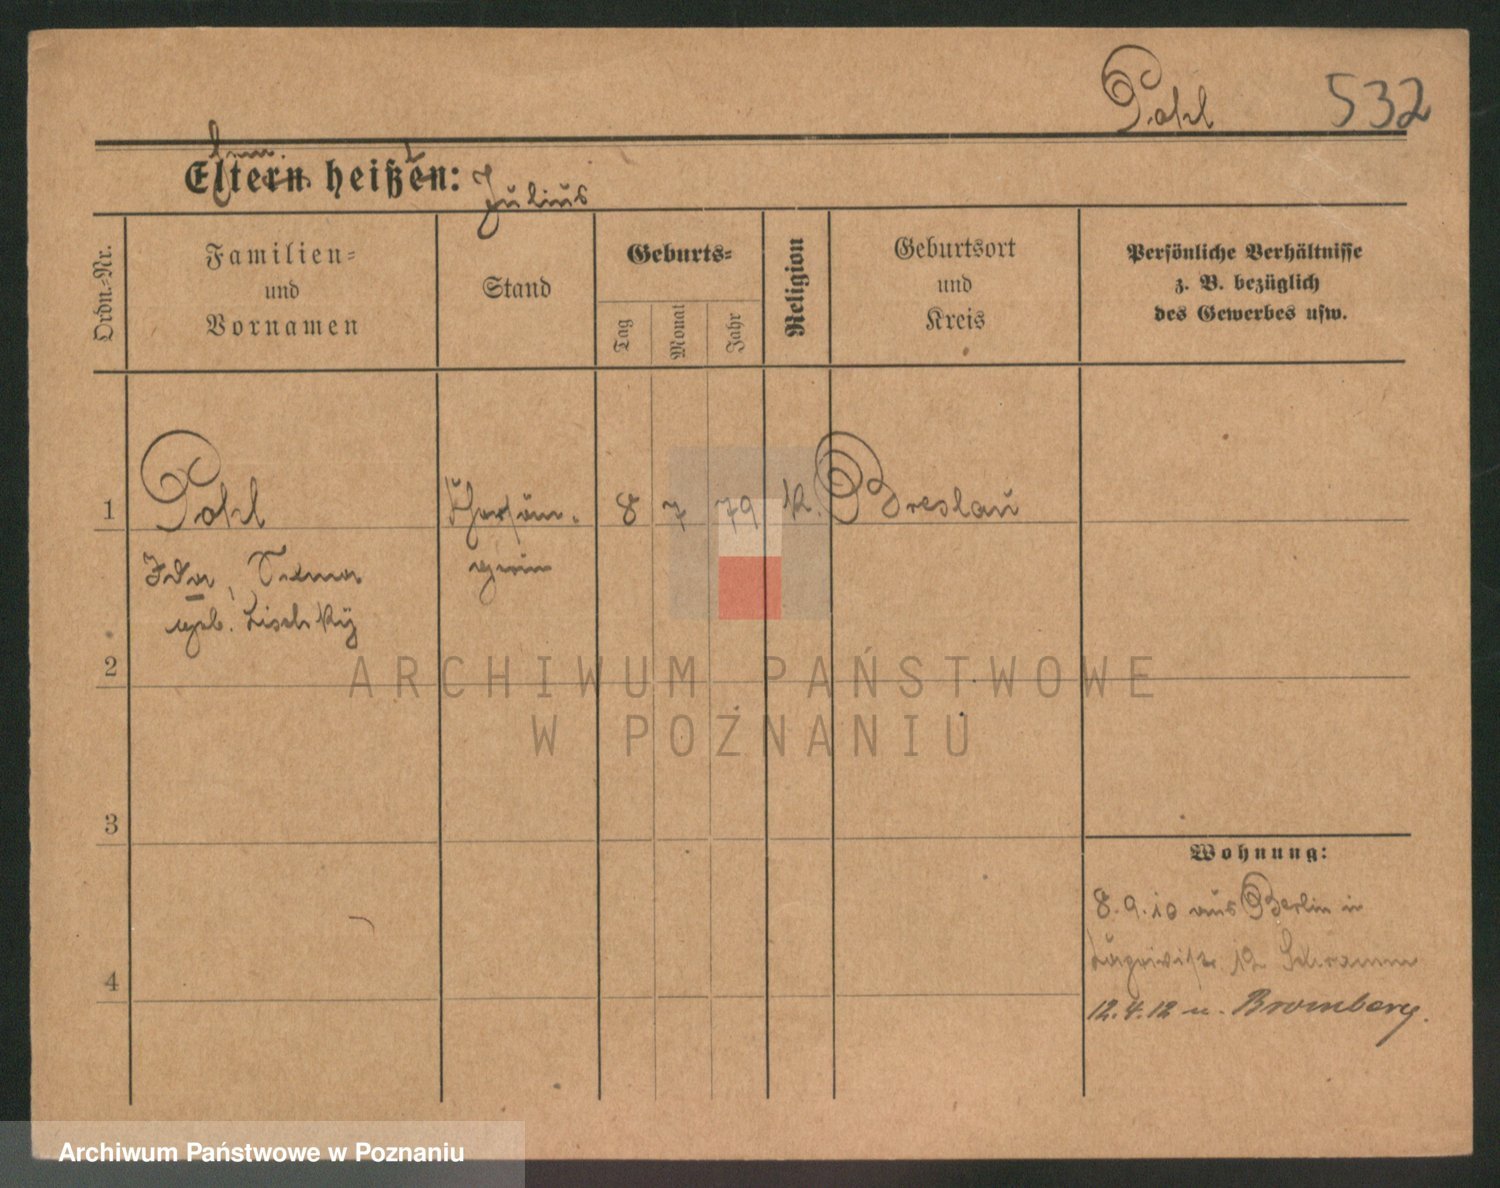 Pohl 532
Eltern heißen: Julius
Ordn.-Nr.
Familien-
und
Vornamen
Stand
Geburts-
Tag
Monat
Jahr
Religion
Geburtsort
und
Kreis
Persönliche Verhältnisse
z. B. bezüglich
des Gewerbes usw.
1 Pohl 8 7 79 k. Breslau
Ida,
geb.
2
ARCHIWUM PAŃSTWOWE
W POZNANIU
3
4
Wohnung:
8.9.10 aus Berlin in
12 Schramm
12.4.12 n. Bromberg.
Archiwum Państwowe w Poznaniu